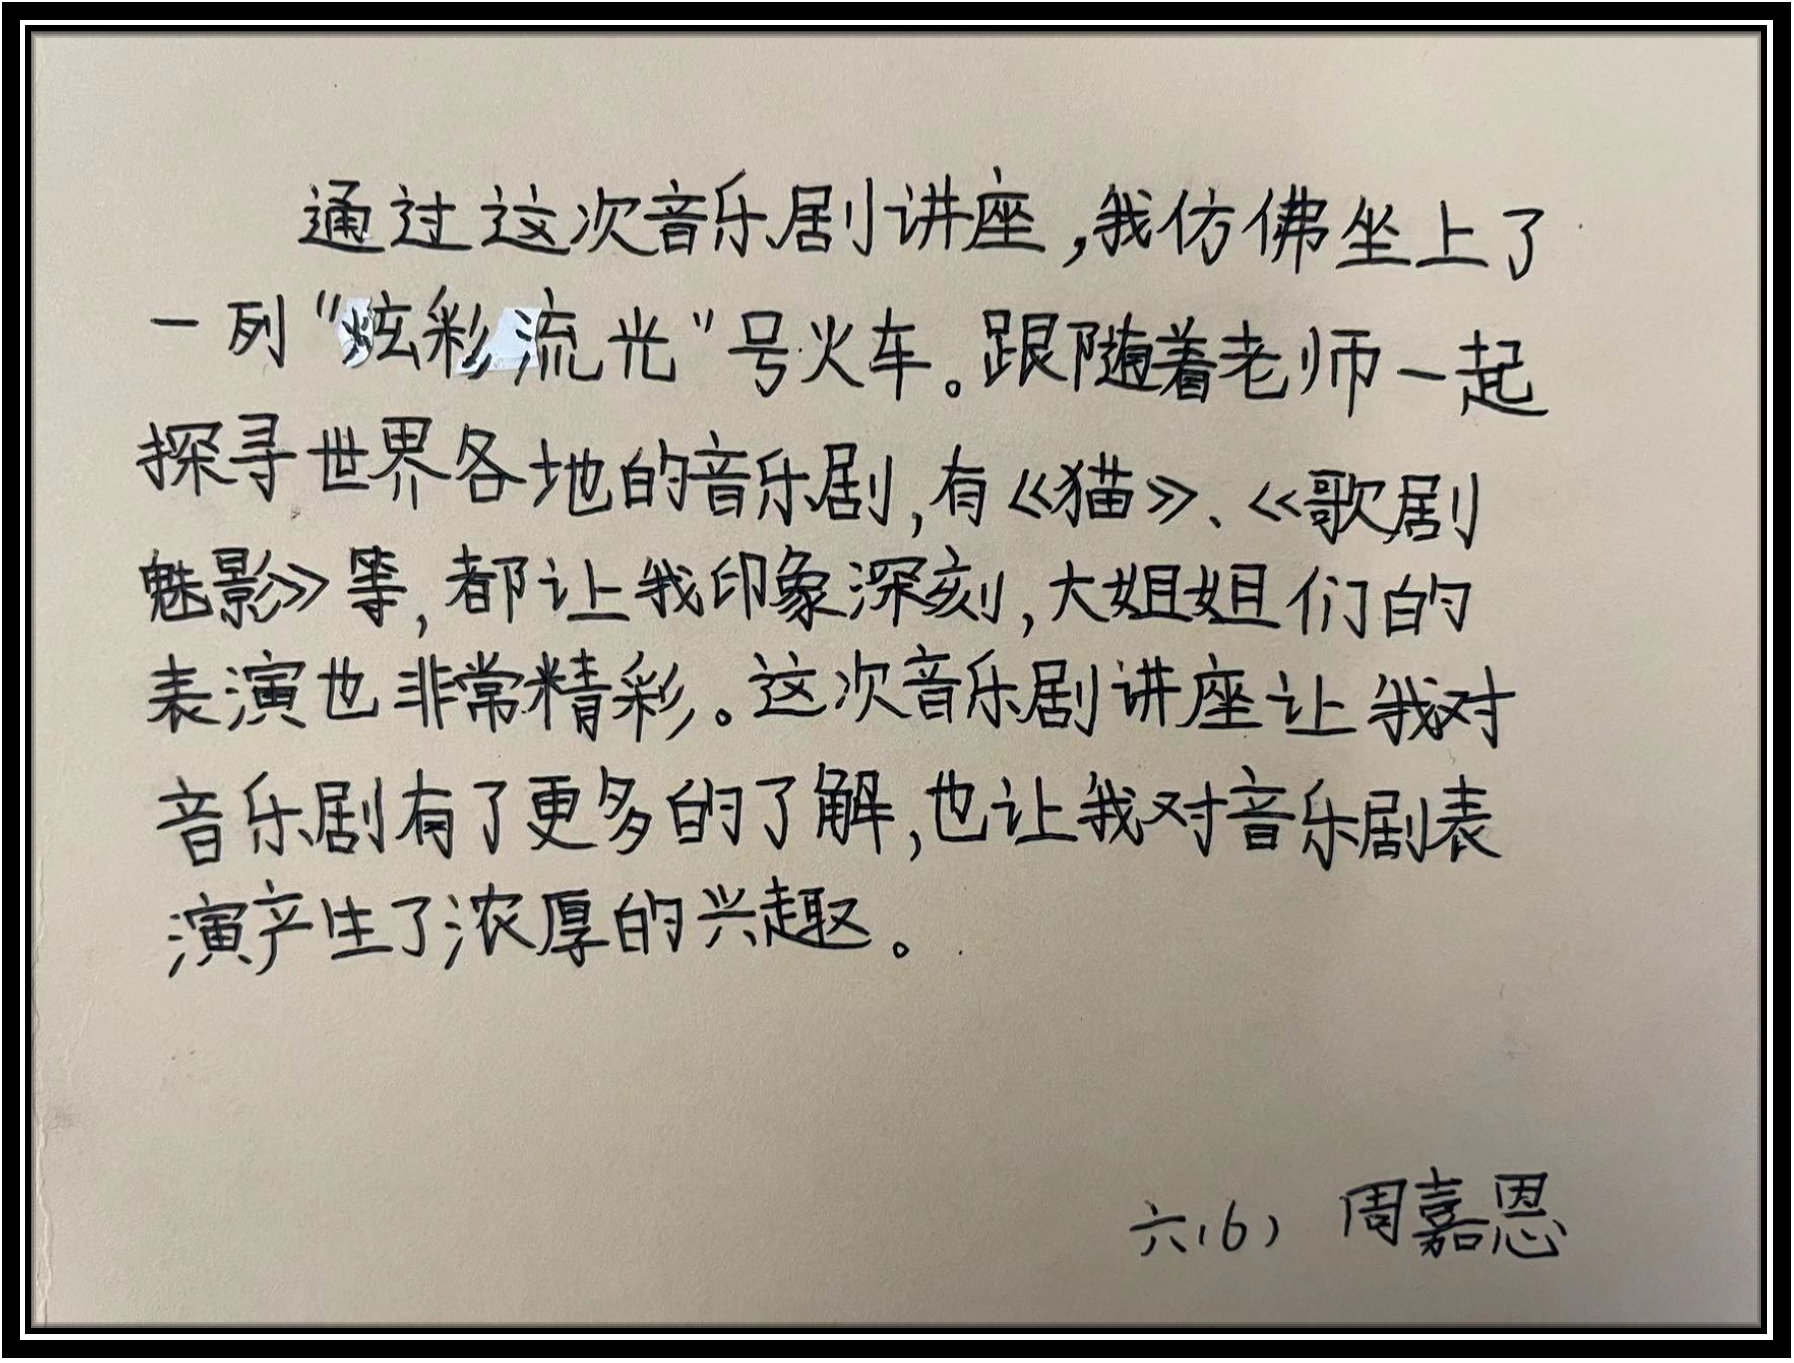 通过这次音乐剧讲座,我仿佛坐上了
一列"炫彩流光"号火车。跟随着老师一起
探寻世界各地的音乐剧,有《猫》、《歌剧
魅影》等,都让我印象深刻,大姐姐们的
表演也非常精彩。这次音乐剧讲座让我对
音乐剧有了更多的了解,也让我对音乐剧表
演产生了浓厚的兴趣。
六(6) 周嘉恩